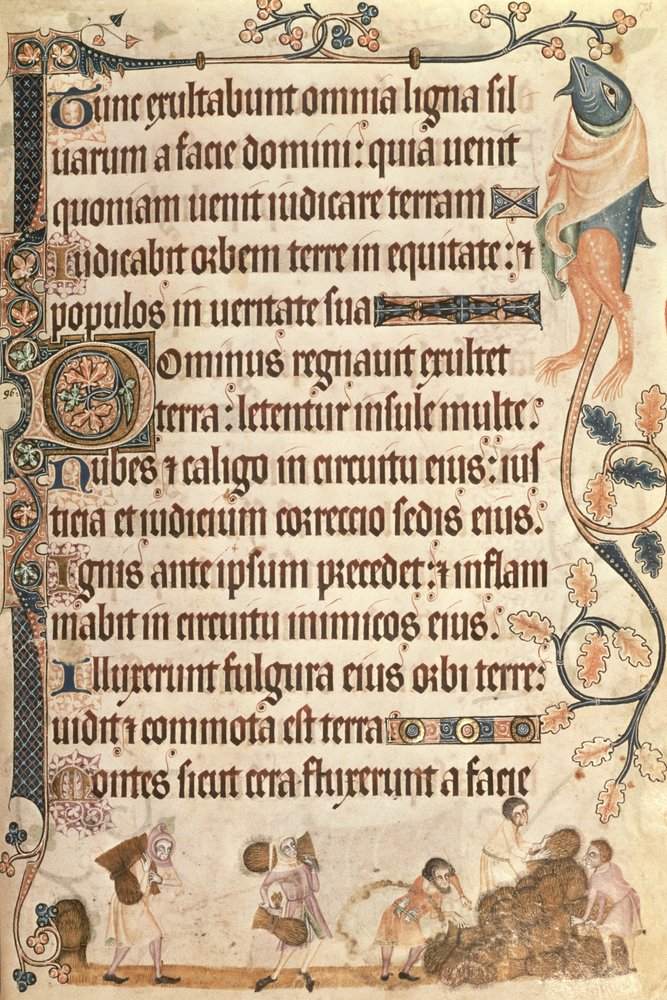 173
Tunc exultabunt omnia ligna sil
uarum a facie domini: quia uenit
quoniam uenit iudicare terram
Iudicabit orbem terre in equitate: ⁊
populos in ueritate sua
Dominus regnauit exultet
96:
terra: letentur insule multe:
Nubes ⁊ caligo in circuitu eius: ius
ticia et iudicium correccio sedis eius.
Ignis ante ipsum precedet: ⁊ inflam
mabit in circuitu inimicos eius.
Illuxerunt fulgura eius orbi terre:
uidit ⁊ commota est terra
Montes sicut cera fluxerunt a facie